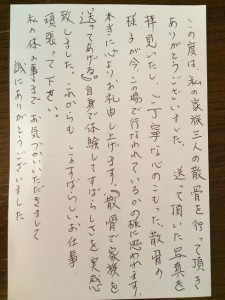 この度は私の家族三人の散骨を行って頂き
ありがとうございました。送って頂いた写真を
拝見いたし、ご丁寧な心のこもった、散骨の
様子が今、この場で行なわれているかの様に思われます。
本当に心よりお礼申し上げます。『散骨で家族を
送ってあげる』自身で体験してすばらしさを実感
致しました。これからも こうすばらしいお仕事
頑張って下さい。
私の体の事までお気づかいいただきまして
誠にありがとうございました